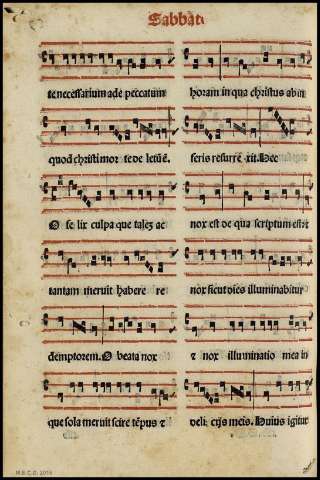 Sabbati
te necessarium ade peccatum
quod christi mor te de letū ē.
O fe lix culpa que talez ac
tantam meruit habere re
demptorem. O beata nox
que sola meruit scire tēpus ⁊
horam in qua christus ab in
feris resurre xit. Hec
nox est de qua scriptum est:
nox sicut dies illuminabitur
⁊ nox illuminatio mea in
deli cijs meis. Huius igitur
M.E.C.D. 2016